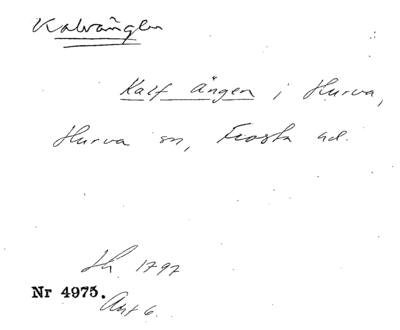 Kalvängen
Kalf ängen i Hurva,
Hurva sn, Frosta hd.
Sh. 1797
Nr 4975.
Akt 6.